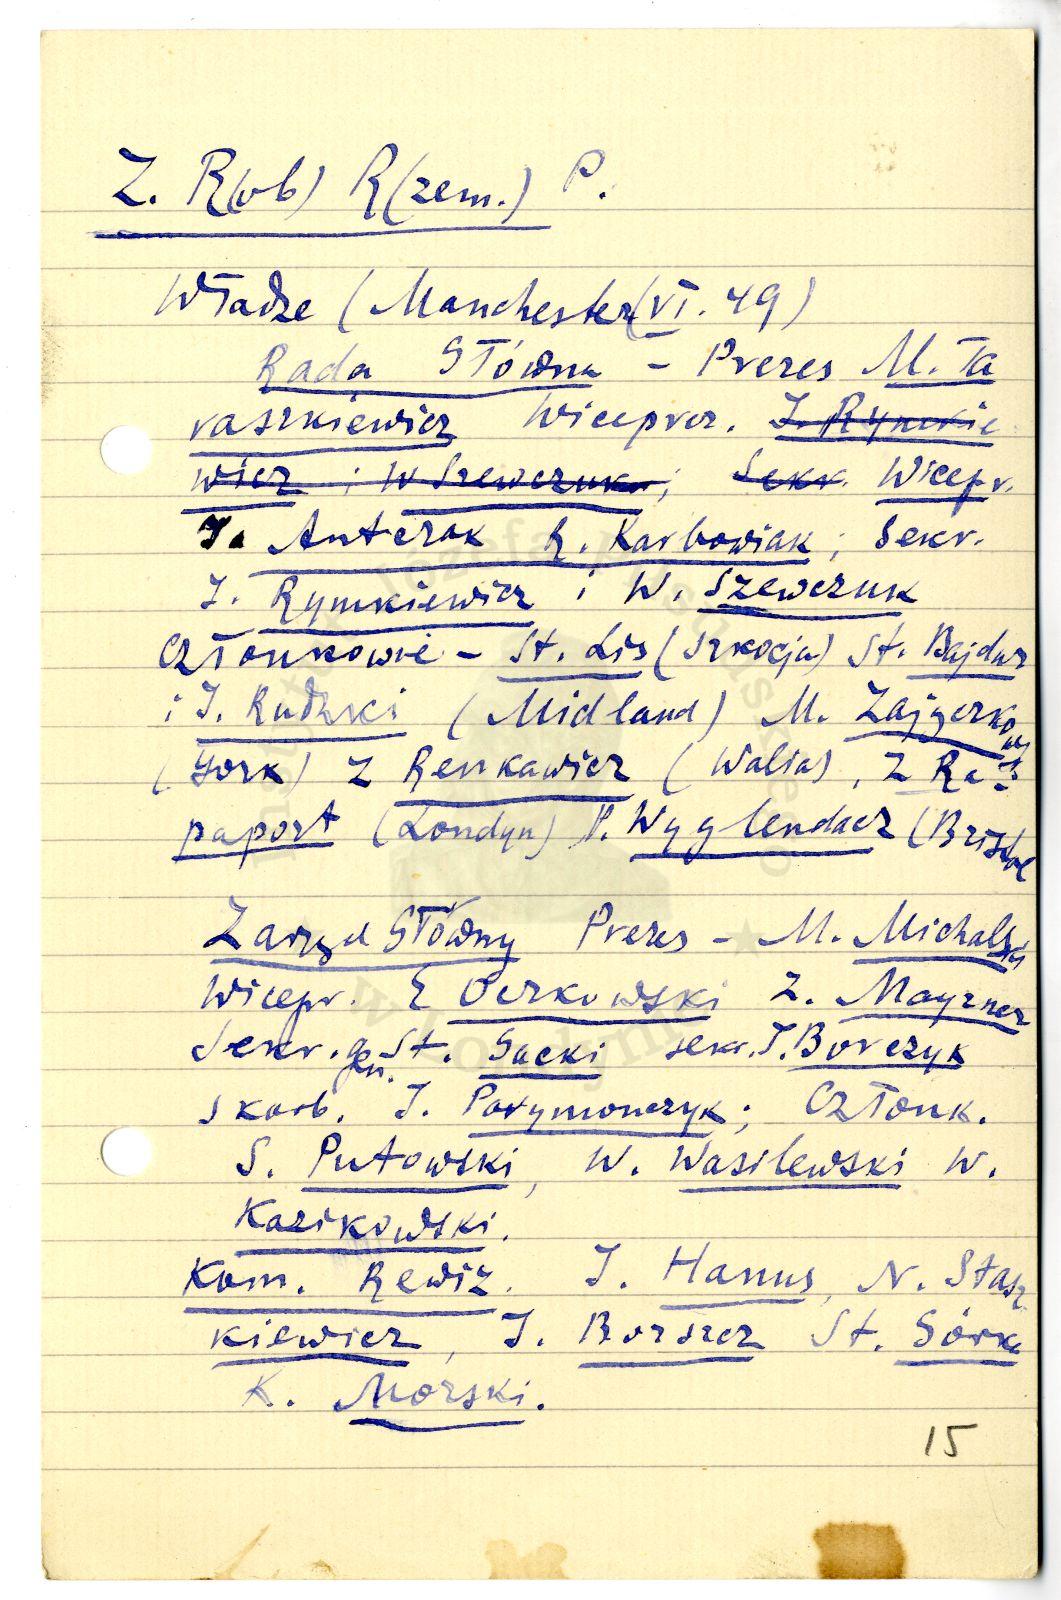 Z. R(ob) R(zem.) P.
Władze (Manchester (VI. 49)
Rada Główna - Prezes M. Ta
raszkiewicz Wiceprez. J. Rymkie
wicz i W Szewczuk; Sekr. Wicepr.
J. Anterak R. Karbowiak; Sekr.
J. Rymkiewicz i W. Szewczuk
Członkowie - St. Lis (Szkocja) St. Bajdur
i J. Rudzki (Midland) M. Zajgerko
wicz
(York) Z Renkawicz (Walia), Z Ra-
paport (Londyn) P. Wyglendacz (Bristol
Zarząd Główny Prezes - M. Michalski
Wicepr. E Ocrkowski Z. Mayzner
Sekr. gen. St. Sacki sekr. J. Borczyk
skarb. J. Parymonczyk; Członk.
S. Putowski, W. Wasilewski W.
Kazikowski.
Kom. Rewiz. J. Hanus, N. Stasz
kiewicz, J. Borszcz St. Górka
K. Morski.
15